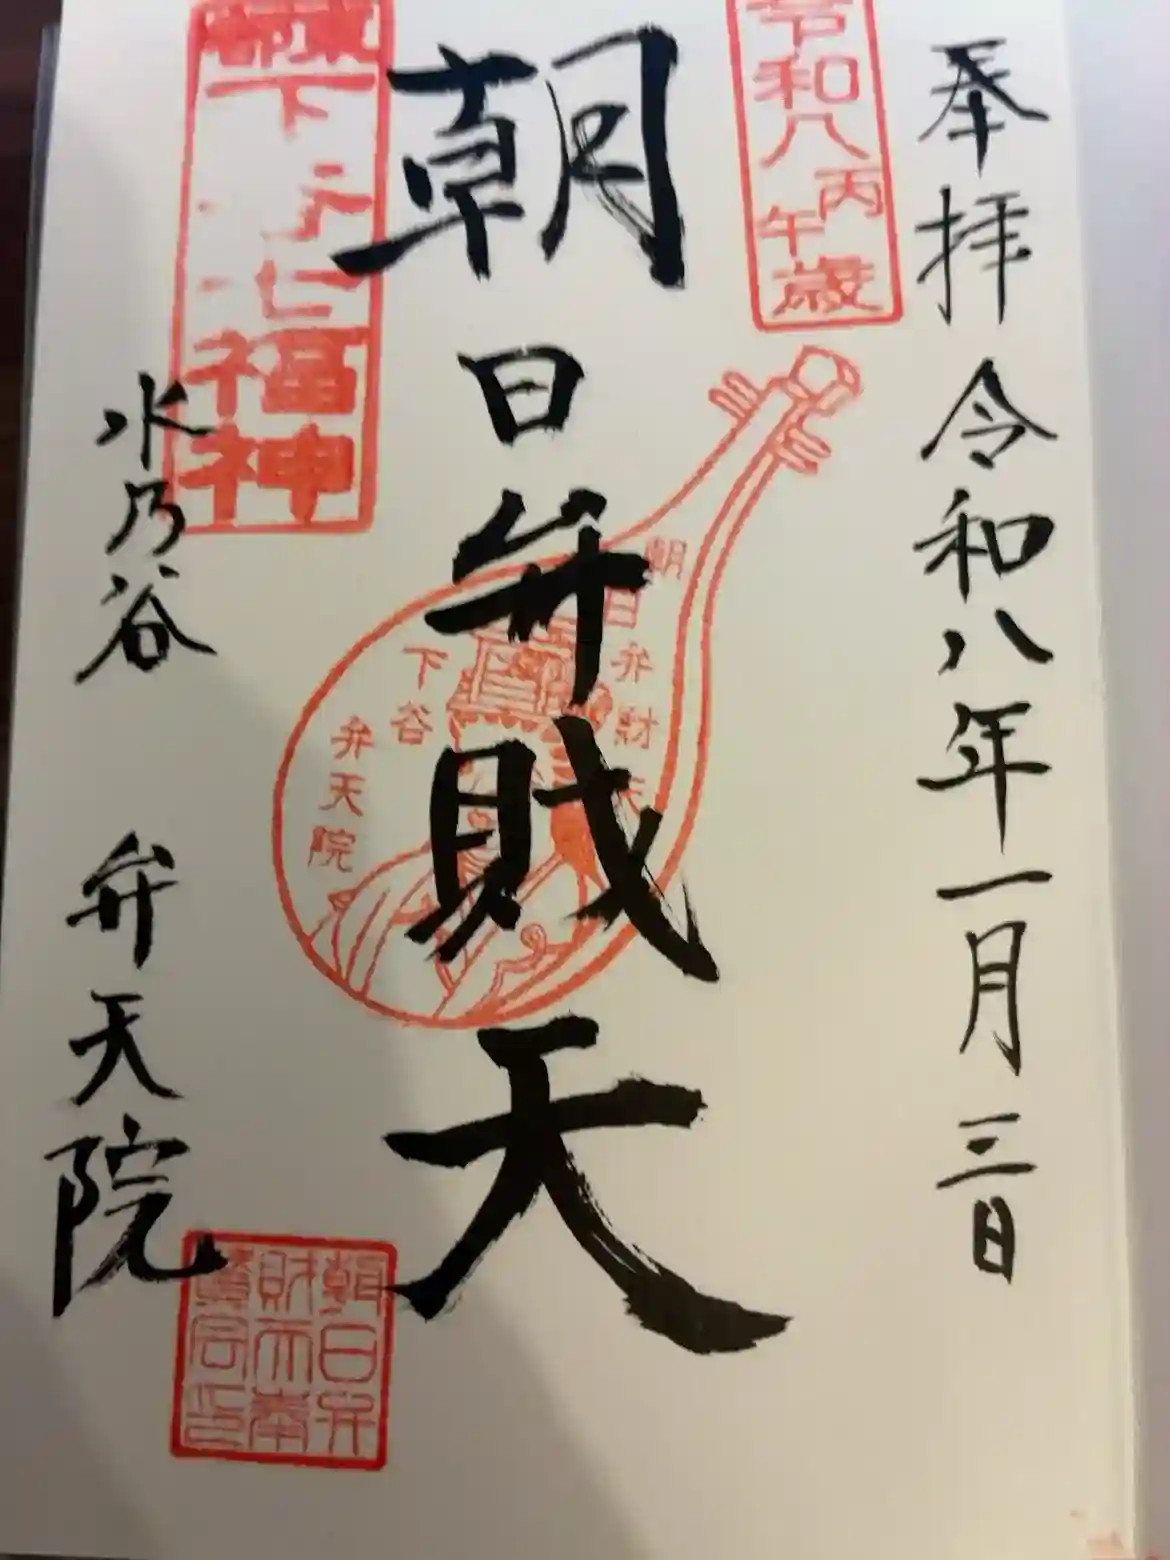 奉拝 令和八年一月三日
令和八丙午歳
朝日弁財天
朝日弁財天
下谷
弁天院
下 七福神
水乃谷 弁天院
朝日弁
財天奉